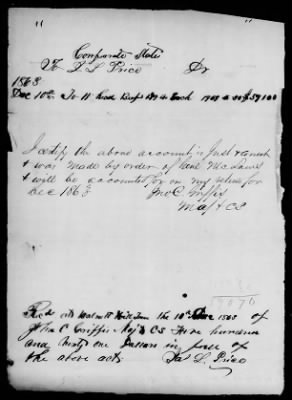 Confederate States
To T L Price Dr
1863
Dec 10th To 11 head Beefs
I certify the above account is Just & correct
& was made by order of Genl McLaws
& will be accounted for on my return for
Dec 1863
Jno C Griffis
Maj & CS
Recd at Walnut Hill Tenn the 10th Dec 1863 of
Jno C Griffis Maj & CS Five hundred
and Ninty one Dollars in full of
the above acts. T L Price